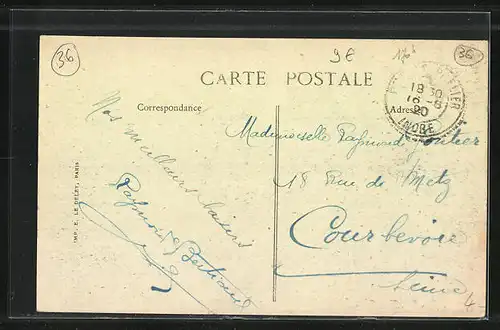 36
9E
36
CARTE POSTALE
Correspondance
Adresse
18 30
16 - 8
20
INDRE
Nos meilleurs baisers
Raymond Bertrand
Mademoiselle Raymonde
18 Rue de Metz
Courbevoie
Seine
IMP. E. LE DELEY, PARIS